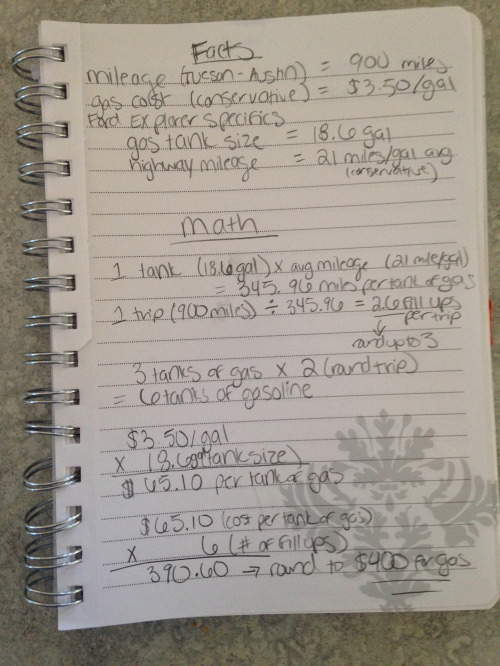 Facts
mileage (Tucson-Austin) = 900 miles
gas cost (conservative) = $3.50/gal
Ford Explorer specifics
gas tank size = 18.6 gal
highway mileage = 21 miles/gal avg
(conservative)
math
1 tank (18.6 gal) x avg mileage (21 mile/gal)
= 345.96 miles per tank of gas
1 trip (900 miles) ÷ 345.96 = 2.6 fill ups
per trip
round up to 3
3 tanks of gas x 2 (round trip)
= 6 tanks of gasoline
$3.50/gal
x 18.6 gal (tank size)
$65.10 per tank of gas
$65.10 (cost per tank of gas)
x 6 (# of fill ups)
390.60 → round to $400 for gas